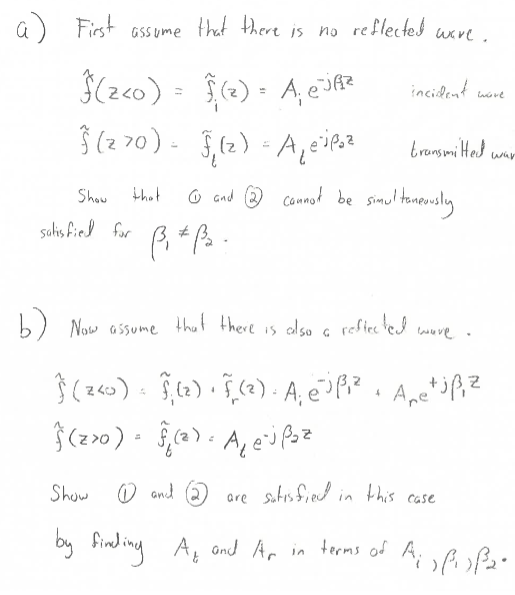 a) First assume that there is no reflected wave.
f̃(z<0) = f̃ᵢ(z) = Aᵢ e^-jβ₁z incident wave
f̃(z>0) = f̃ₜ(z) = Aₜ e^-jβ₂z transmitted wav
Show that ① and ② cannot be simultaneously
satisfied for β₁ ≠ β₂.
b) Now assume that there is also a reflected wave.
f̃(z<0) = f̃ᵢ(z) + f̃ᵣ(z) = Aᵢ e^-jβ₁z + Aᵣ e^+jβ₁z
f̃(z>0) = f̃ₜ(z) = Aₜ e^-jβ₂z
Show ① and ② are satisfied in this case
by finding Aₜ and Aᵣ in terms of Aᵢ, β₁, β₂.